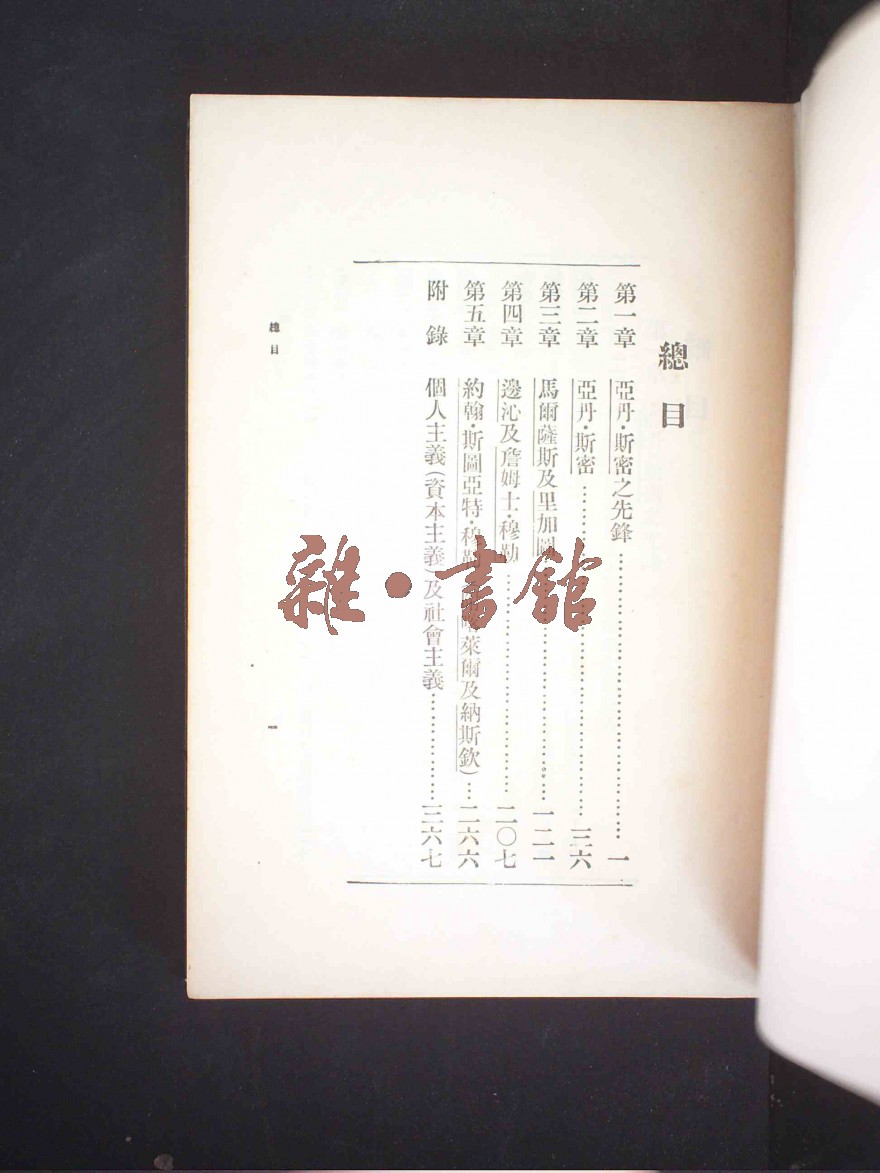 總目
第一章 亞丹·斯密之先鋒……一
第二章 亞丹·斯密……三六
第三章 馬爾薩斯及里加圖……一二一
第四章 邊沁及詹姆士·穆勒……二〇七
第五章 約翰·斯圖亞特·穆勒 萊爾及納斯欽)……二六六
附錄 個人主義(資本主義)及社會主義……三六七
總目
一
雜·書館